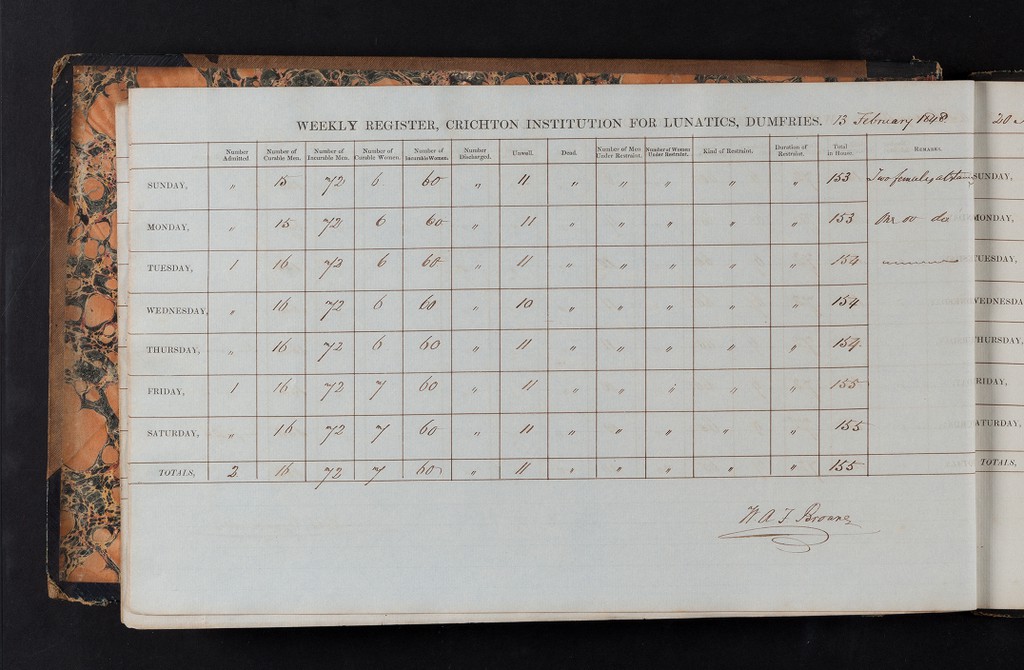 WEEKLY REGISTER, CRICHTON INSTITUTION FOR LUNATICS, DUMFRIES. 13 February 1848. 20
Number Admitted Number of Curable Men. Number of Incurable Men. Number of Curable Women. Number of Incurable Women. Number Discharged. Unwell. Dead. Number of Men Under Restraint. Number of Women Under Restraint. Kind of Restraint. Duration of Restraint. Total in House. Remarks.
SUNDAY, " 15 72 6 60 " 11 " " " " " 153 Two females SUNDAY,
MONDAY, " 15 72 6 60 " 11 " " " " " 153 MONDAY,
TUESDAY, 1 16 72 6 60 " 11 " " " " " 154 TUESDAY,
WEDNESDAY, " 16 72 6 60 " 10 " " " " " 154 WEDNESDA
THURSDAY, " 16 72 6 60 " 11 " " " " " 154. THURSDAY,
FRIDAY, 1 16 72 7 60 " 11 " " " " " 155 FRIDAY,
SATURDAY, " 16 72 7 60 " 11 " " " " " 155 SATURDAY,
TOTALS, 2 16 72 7 60 " 11 " " " " " 155 TOTALS,
W A F Browne